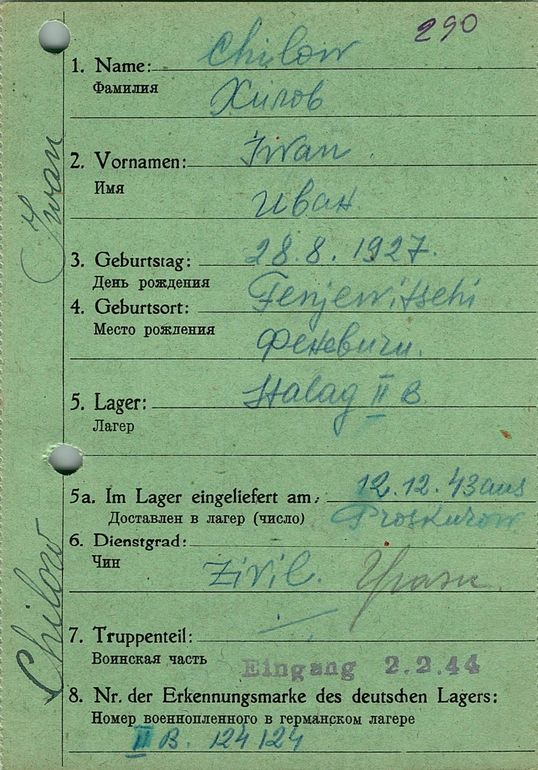 290
1. Name: Chilow
Фамилия
Хилов
2. Vornamen: Iwan
Имя
Иван
3. Geburtstag: 28.8.1927.
День рождения
4. Geburtsort: Fenjewitschi
Место рождения
Феневичи.
5. Lager: Stalag II B
Лагер
5a. Im Lager eingeliefert am: 12.12.43 aus
Доставлен в лагер (число) Proskurow
6. Dienstgrad:
Чин
Zivil.
7. Truppenteil:
Воинская часть
Eingang 2.2.44
8. Nr. der Erkennungsmarke des deutschen Lagers:
Номер военнопленного в германском лагере
II B. 124124
Chilow Iwan